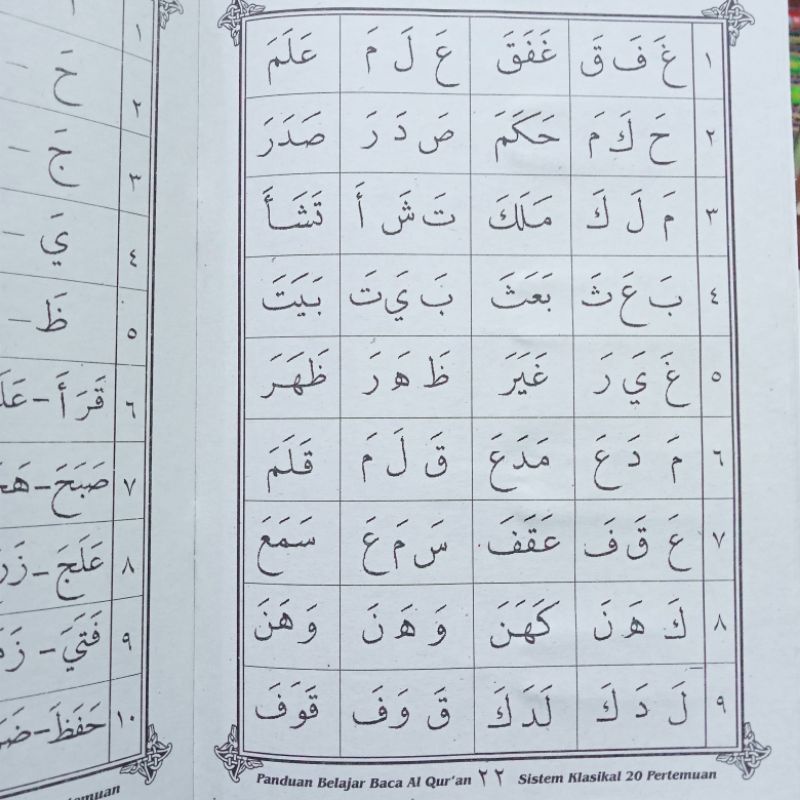 ١ غَ فَ قَ غَفَقَ عَ لَ مَ عَلَمَ
٢ حَ كَ مَ حَكَمَ صَ دَ رَ صَدَرَ
٣ مَ لَ كَ مَلَكَ تَ شَ أَ تَشَأَ
٤ بَ عَ ثَ بَعَثَ بَ يَ تَ بَيَتَ
٥ غَ يَ رَ غَيَرَ ظَ هَ رَ ظَهَرَ
٦ مَ دَ عَ مَدَعَ قَ لَ مَ قَلَمَ
٧ عَ قَ فَ عَقَفَ سَ مَ عَ سَمَعَ
٨ كَ هَ نَ كَهَنَ وَ هَ نَ وَهَنَ
٩ لَ دَ كَ لَدَكَ قَ وَ فَ قَوَفَ
Panduan Belajar Baca Al Qur'an ٢٢ Sistem Klasikal 20 Pertemuan
١
٢ حَ –
٣ جَ –
٤ يَ –
٥ ظَ –
٦ قَرَأَ –
٧ صَبَحَ –
٨ عَلَجَ –
٩ فَتَيَ –
١٠ حَفَظَ –